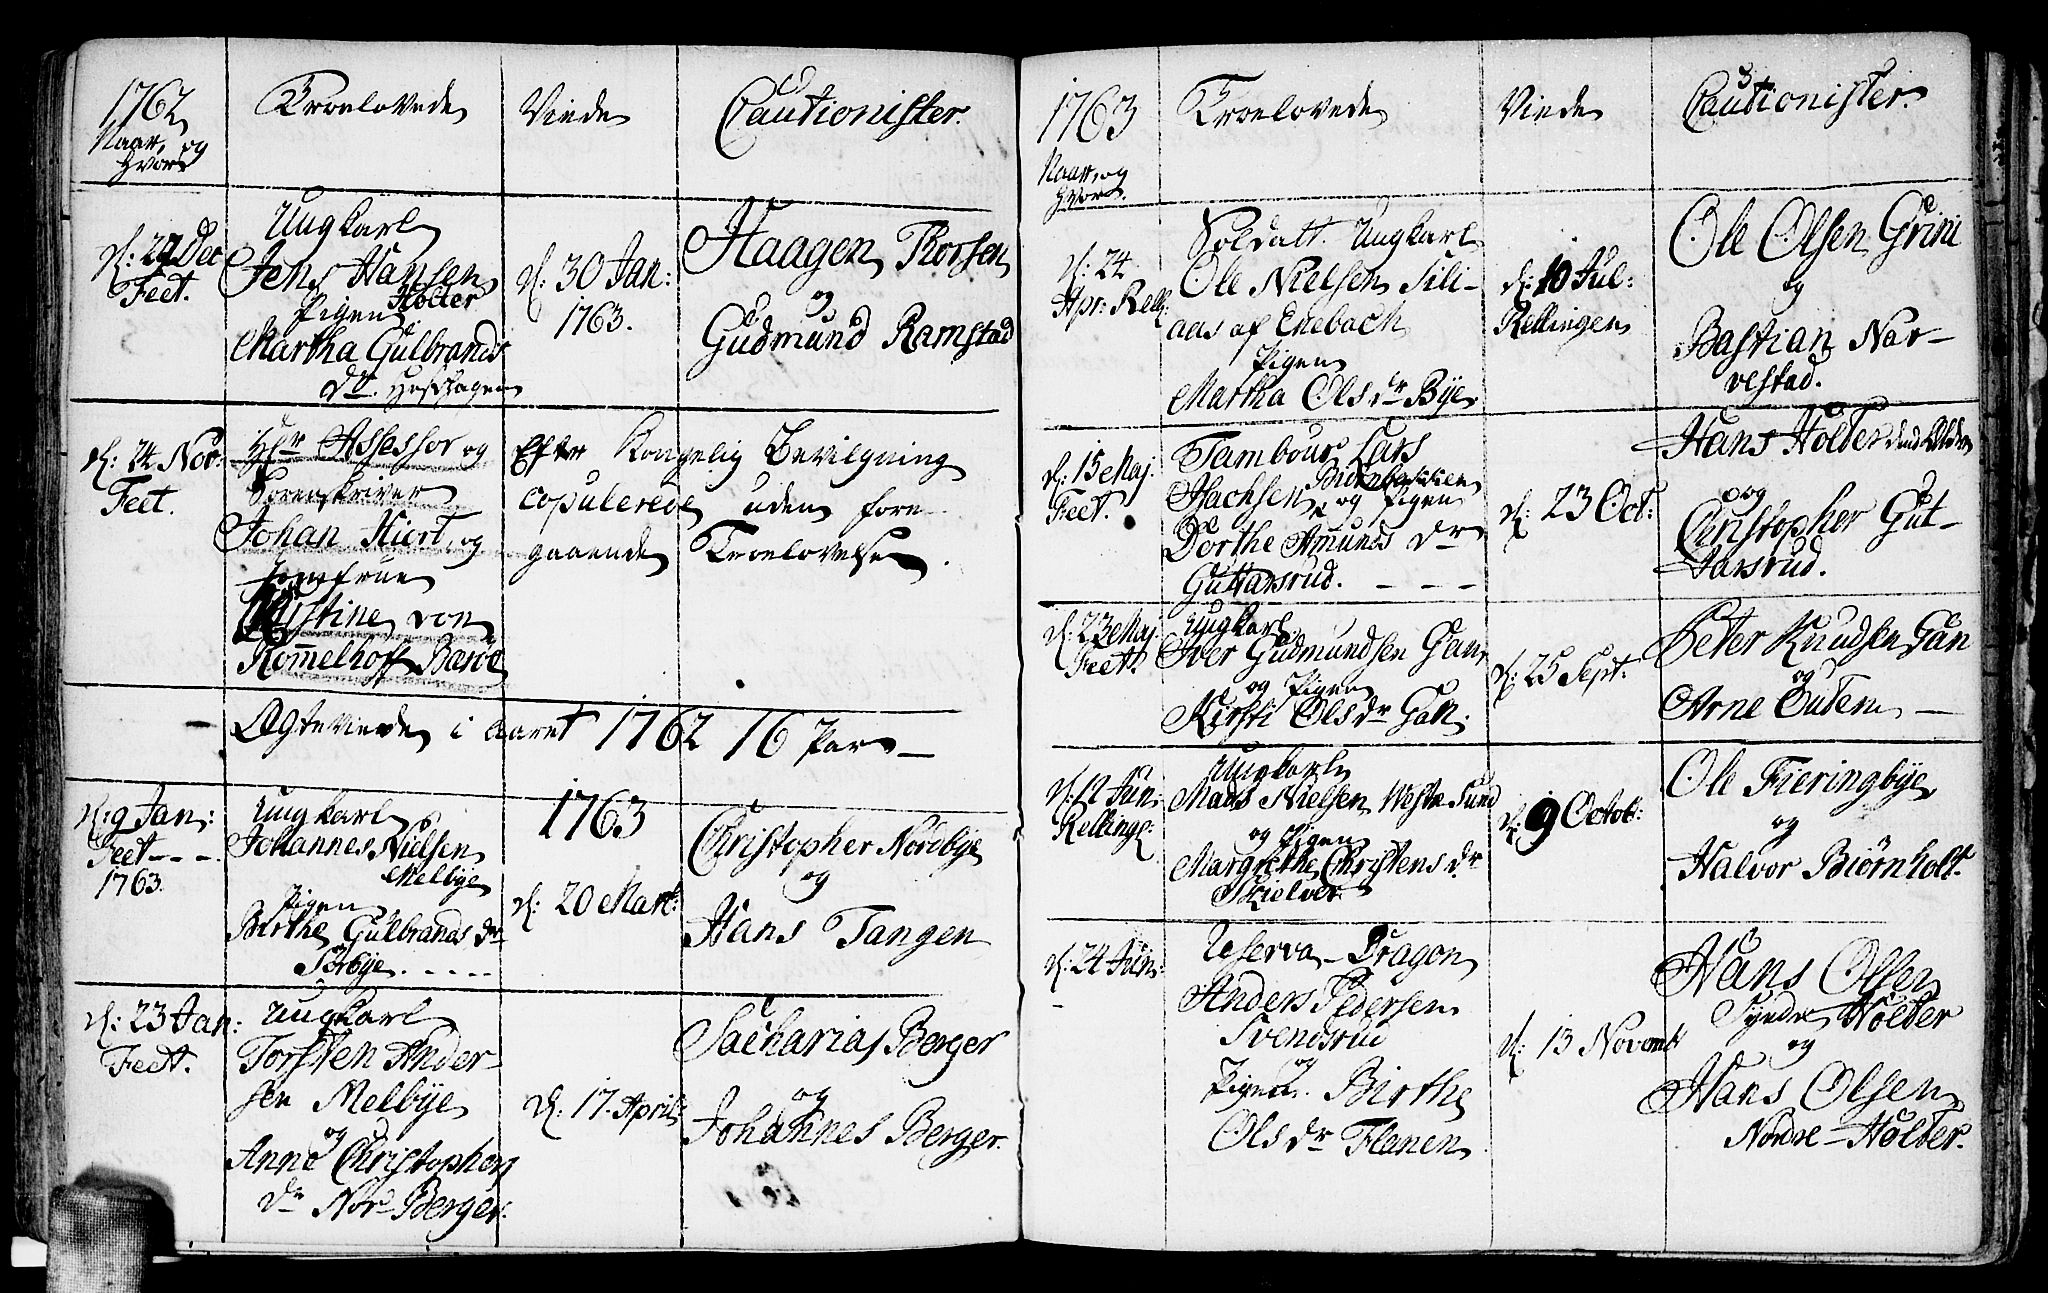 1762
Naar, og
hvor
Troelovede
Viede
Cautionister.
d: 27 Dec
Feet.
Ungkarl
Jens Hansen
Holter
Pigen
Martha Gulbrands
Dr.
d: 30 Jan:
1763.
Haagen Thorsen
og
Gudmund Ramstad
d: 24 Nov:
Feet.
Hr Assessor og
Sorenskriver
Johan Hiort, og
Jomfrue
Kirstine von
Rom̅elhoff Bærøe
Efter Kongelig Bevilgning
copulerede uden fore
gaaende Troelovelse.
Ægteviede i Aaret 1762 16 Par
d: 9 Jan:
Feet - - -
1763.
Ungkarl
Johannes Nielsen
Melbye
Pigen
Birthe Gulbrands dr
Sørbye. - - - -
1763
d: 20 Mart:
Christopher Nordbye
og
Hans Tangen
d: 23 Jan:
Feet.
Ungkarl
Torsten Ander-
sen Melbye
og
Anne Christophers
dr Nor Berger.
d: 17. April:
Sacharias Berger
og
Johannes Berger.
1763
Naar, og
hvor.
Troelovede
Viede
Cautionister.
d: 24
Apr: Rell:
Soldatt. Ungkarl
Ole Nielsen Lili-
aas af Enebach
Pigen
Martha Ols dr Bye.
d: 10 Jul:
Rellingen
Ole Olsen Grini
og
Bastian Nar-
vestad.
d: 15 Maj:
Feet.
Tambour Lars
Isachsen
og Pigen
Dorthe Amunds dr
Guttarsrud. - - -
d: 23 Oct:
Hans Holter
og
Christopher Gut-
tarsrud.
d: 23 Maj:
Feet:
Ungkarl
Iver Gudmundsen Gan,
og Pigen
Kirsti Ols dr Gan.
d: 25 Sept:
Peter Knudsen Gan
og
Arne Tutern
d: 12 Jun:
Relling:
Ungkarl
Mads Nielsen Westre Lund
og Pigen
Margrethe Christens dr
Skielver.
d: 9 Octob:
Ole Fieringbye
og
Halvor Biørnholt.
d: 24 Jun:
Reserva-Dragon
Anders Pedersen
Svendsrud
og
Pigen. Birthe
Ols dr Flanen.
d: 13 Novemb:
Hans Olsen
Syndre Holter
og
Hans Olsen
Nordre-Holter.